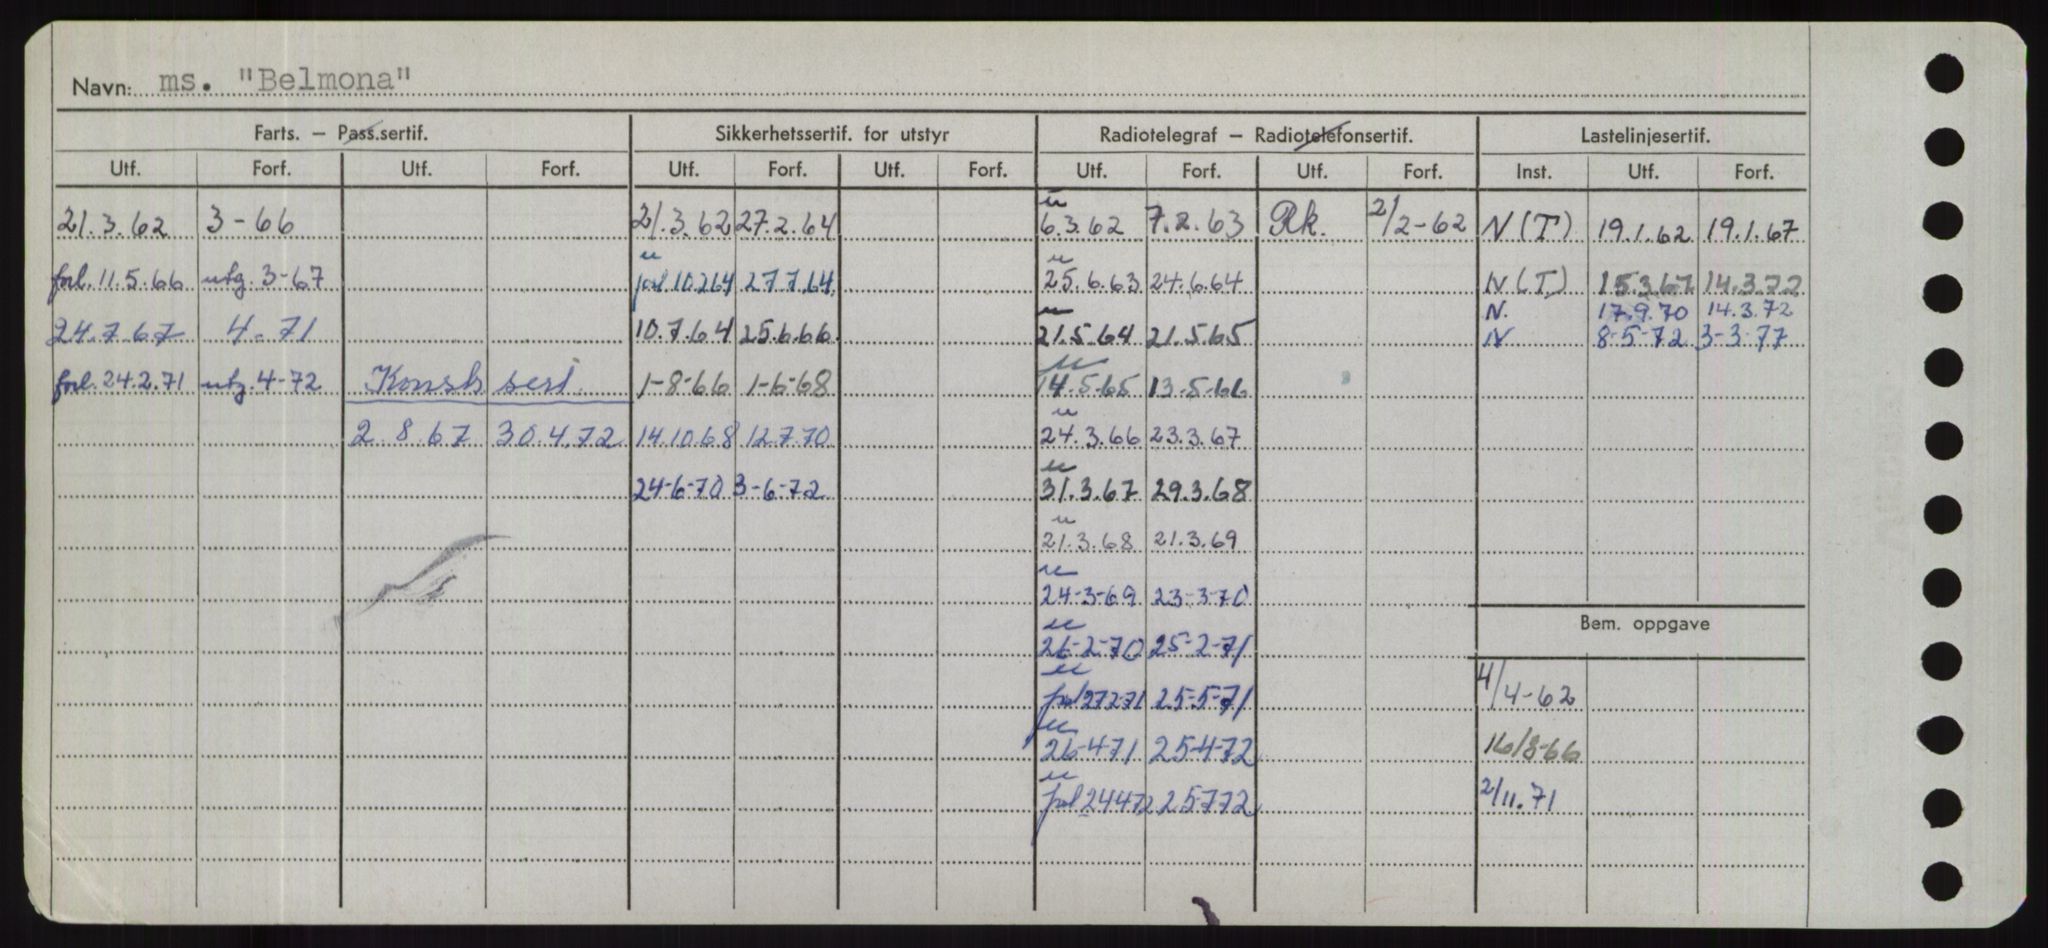 Navn: ms. "Belmona"
Farts. — Pass.sertif. Sikkerhetssertif. for utstyr Radiotelegraf — Radiotelefonsertif. Lastelinjesertif.
Utf. Forf. Utf. Forf. Utf. Forf. Utf. Forf. Utf. Forf. Utf. Forf. Inst. Utf. Forf.
u
21.3.62 3-66 21.3.62 27.2.64 6.3.62 7.2.63 Rk. 2/2-62 N(T) 19.1.62 19.1.67
u u
forl. 11.5.66 utg. 3-67 forl 10.2.64 27.7.64. 25.6.63 24.6.64 N(T) 15.3.67 14.3.72
N. 17.9.70 14.3.72
u
24.7.67 4-71 10.7.64 25.6.66 21.5.64 21.5.65 N 8-5-72 3-3-77
u
forl. 24.2.71 utg. 4-72 Konstr sert. 1-8-66 1-6-68 14.5.65 13.5.66
u
2.8.67 30.4.72 14.10.68 12.7.70 24.3.66 23.3.67
u
24-6-70 3-6-72 31.3.67 29.3.68
u
21.3.68 21.3.69
u
24-3-69 23-3-70
Bem. oppgave
u
26-2-70 25-2-71
u
forl 27271 25-5-71 4/4-62
u
26-4-71 25-4-72 16/8-66
u
forl 24472 25772 2/11.71